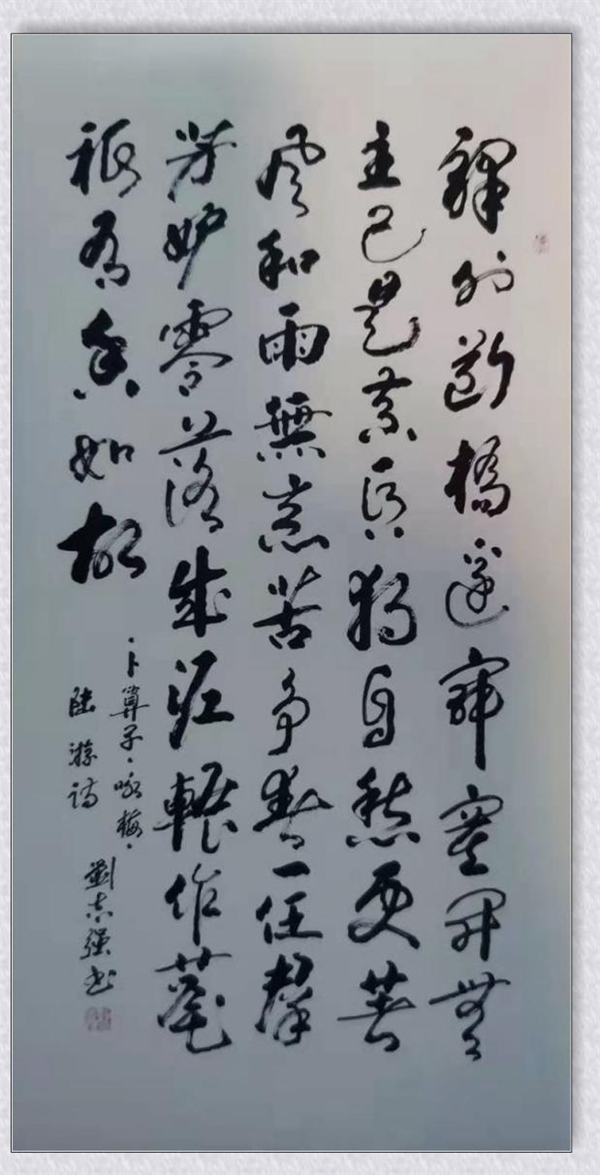 驛外斷橋邊寂寞開無
主已是黃昏獨自愁更著
風和雨無意苦爭春一任羣
芳妒零落成泥輾作塵
祇有香如故
·卜算子·咏梅·
陸游詩
劉志强书